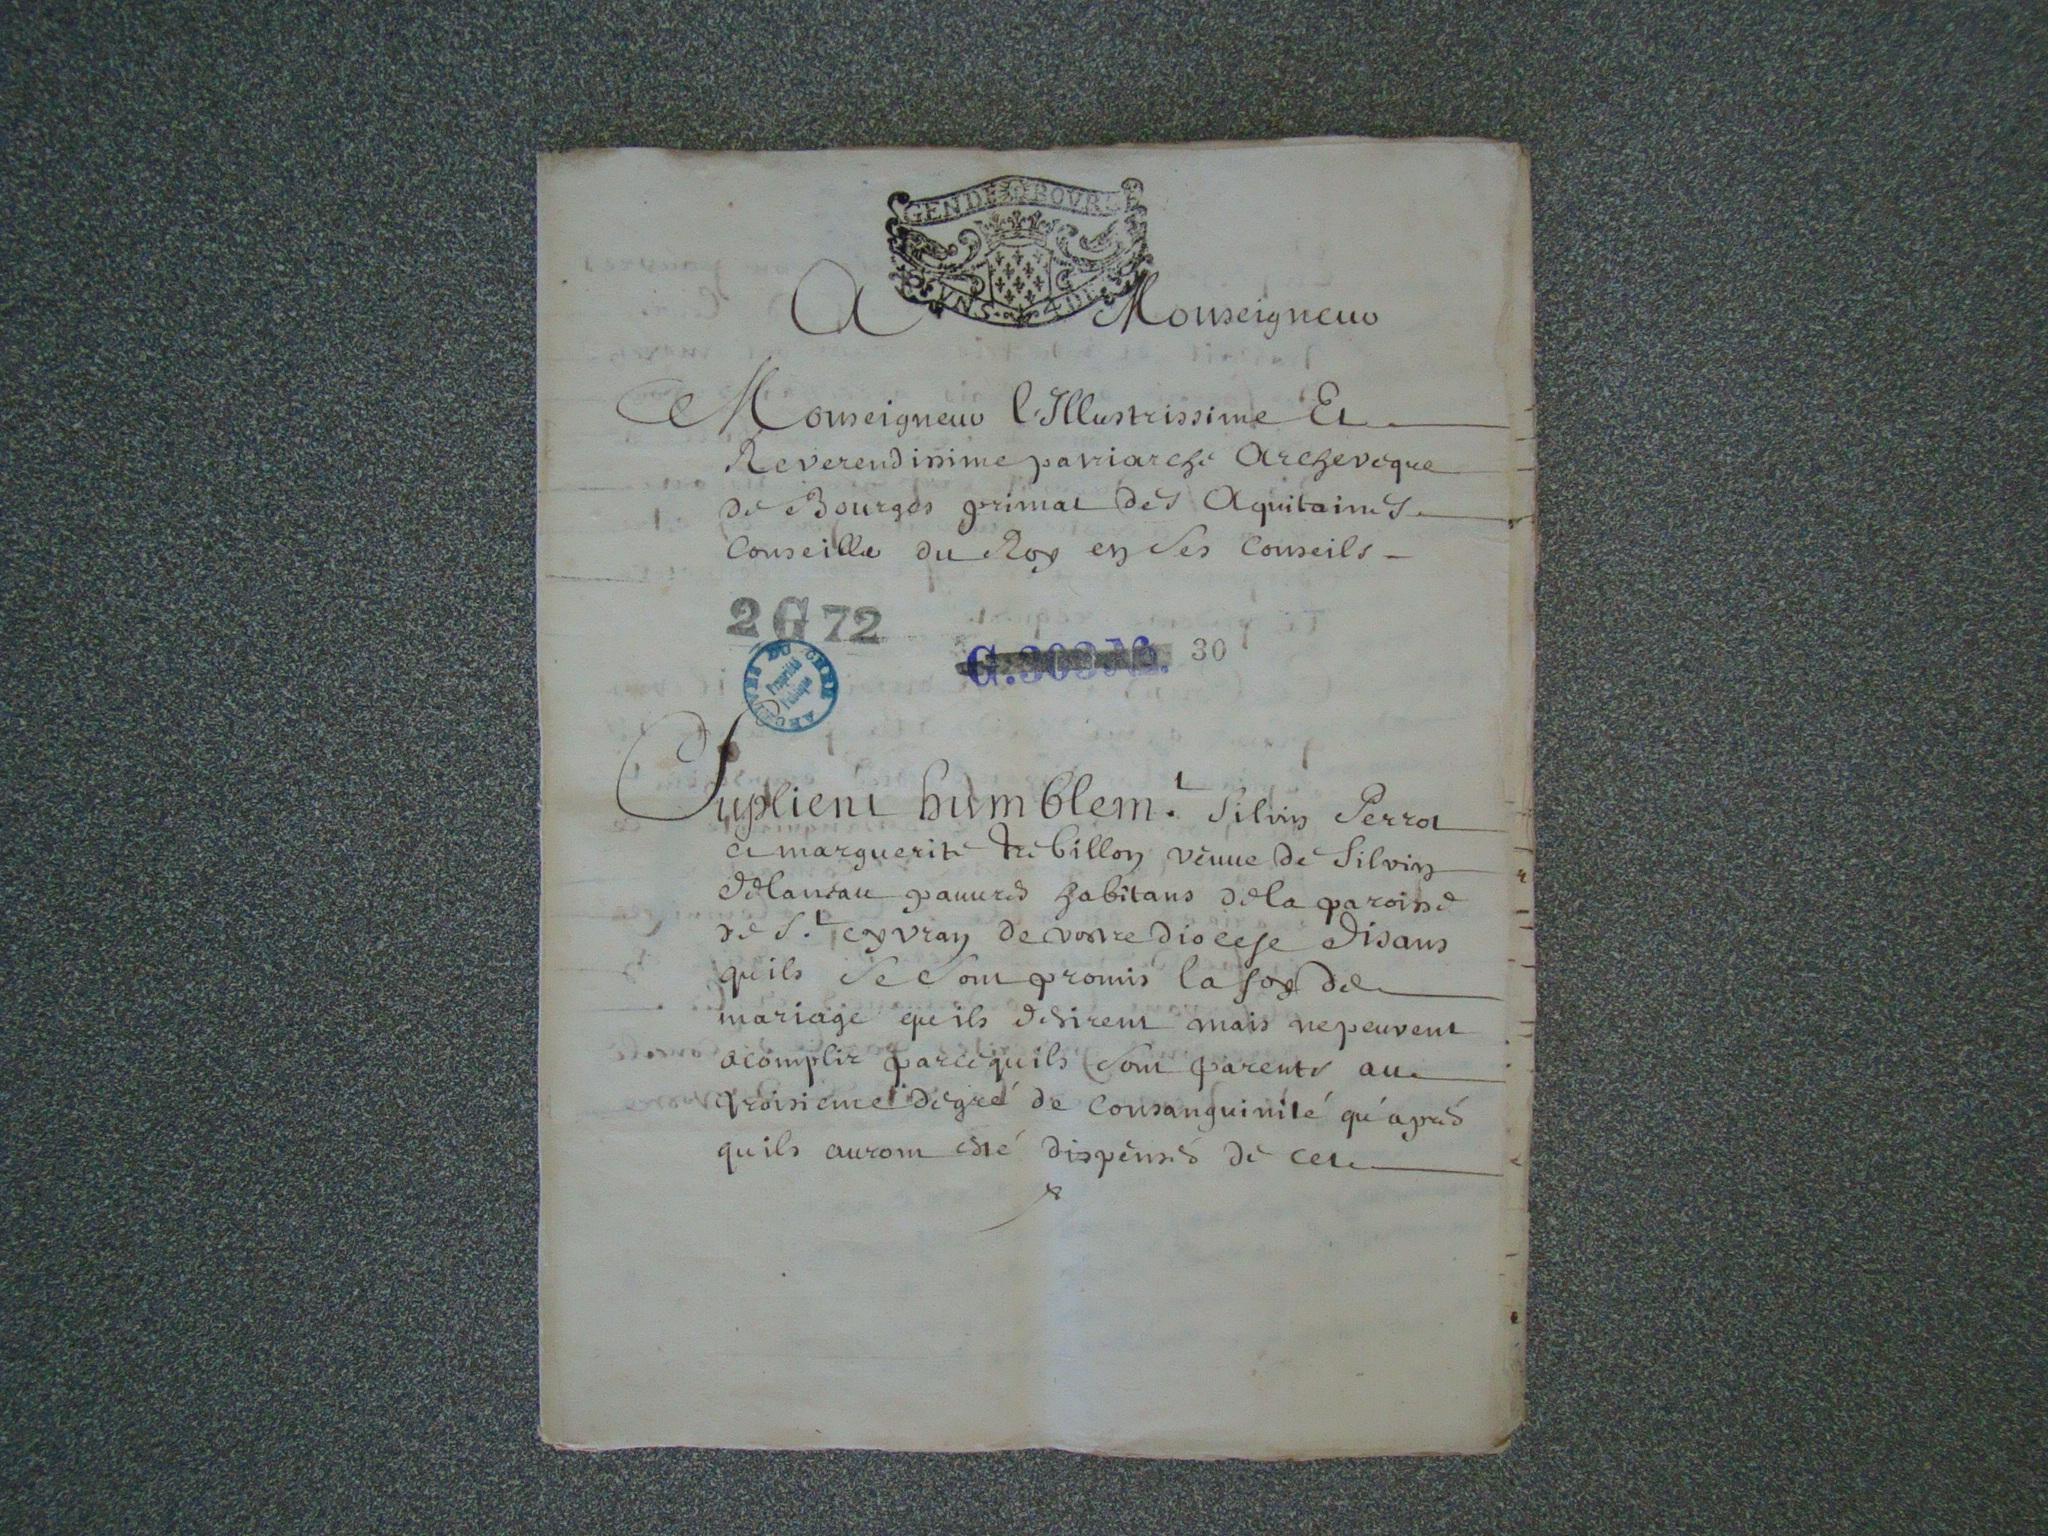 GEN DE BOVRG
VNS 4 DE
A Monseigneur
Monseigneur l'Illustrissime Et
Reverendissime patriarche Archeveque
de Bourges primat des Aquitaines
Conseiller du Roy en Ses Conseils
2 G 72
30
ARCHIVES DU CHER
Propriété
Publique
Suplient humblem.t Silvin Perrot
et marguerite trebillon veuue de Silvin
delaneau pauures habitans de la paroisse
de S.t cyvran de vostre diocese disans
quils se sont promis la foy de
mariage quils desirent mais ne peuvent
acomplir parcequils sont parents au
troisieme degré de consanguinité qu'apres
quils auront esté dispensés de cet